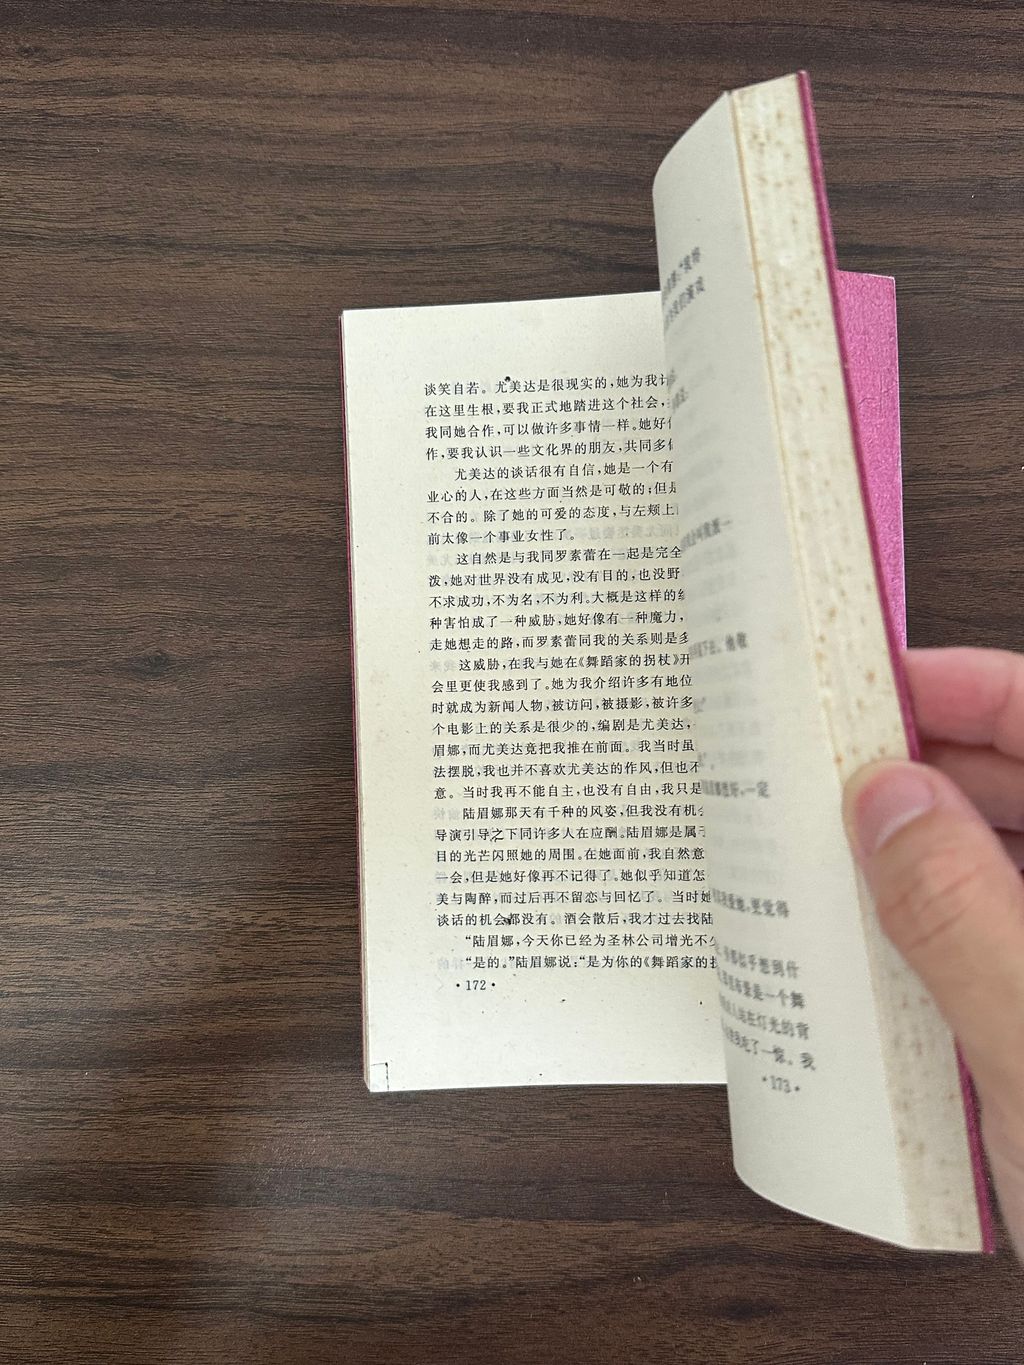 谈笑自若。尤美达是很现实的,她为我计
在这里生根,要我正式地踏进这个社会,
我同她合作,可以做许多事情一样。她好
作,要我认识一些文化界的朋友,共同多
尤美达的谈话很有自信,她是一个有
业心的人,在这些方面当然是可敬的;但是
不合的。除了她的可爱的态度,与左颊上
前太像一个事业女性了。
这自然是与我同罗素蕾在一起是完全
泼,她对世界没有成见,没有目的,也没野
不求成功,不为名,不为利。大概是这样的
种害怕成了一种威胁,她好像有一种魔力,
走她想走的路,而罗素蕾同我的关系则是多
这威胁,在我与她在《舞蹈家的拐杖》开
会里更使我感到了。她为我介绍许多有地位
时就成为新闻人物,被访问,被摄影,被许多
个电影上的关系是很少的,编剧是尤美达,
眉娜,而尤美达竟把我推在前面。我当时虽
法摆脱,我也并不喜欢尤美达的作风,但也不
意。当时我再不能自主,也没有自由,我只是
陆眉娜那天有千种的风姿,但我没有机
导演引导之下同许多人在应酬。陆眉娜是属于
目的光芒闪照她的周围。在她面前,我自然意
一会,但是她好像再不记得了。她似乎知道怎
美与陶醉,而过后再不留恋与回忆了。当时她
谈话的机会都没有。酒会散后,我才过去找陆
“陆眉娜,今天你已经为圣林公司增光不少
“是的。”陆眉娜说:“是为你的《舞蹈家的
·172·
一定
更觉得
似乎想到什
是一个舞
站在灯光的背
吃了一惊。我
·173·